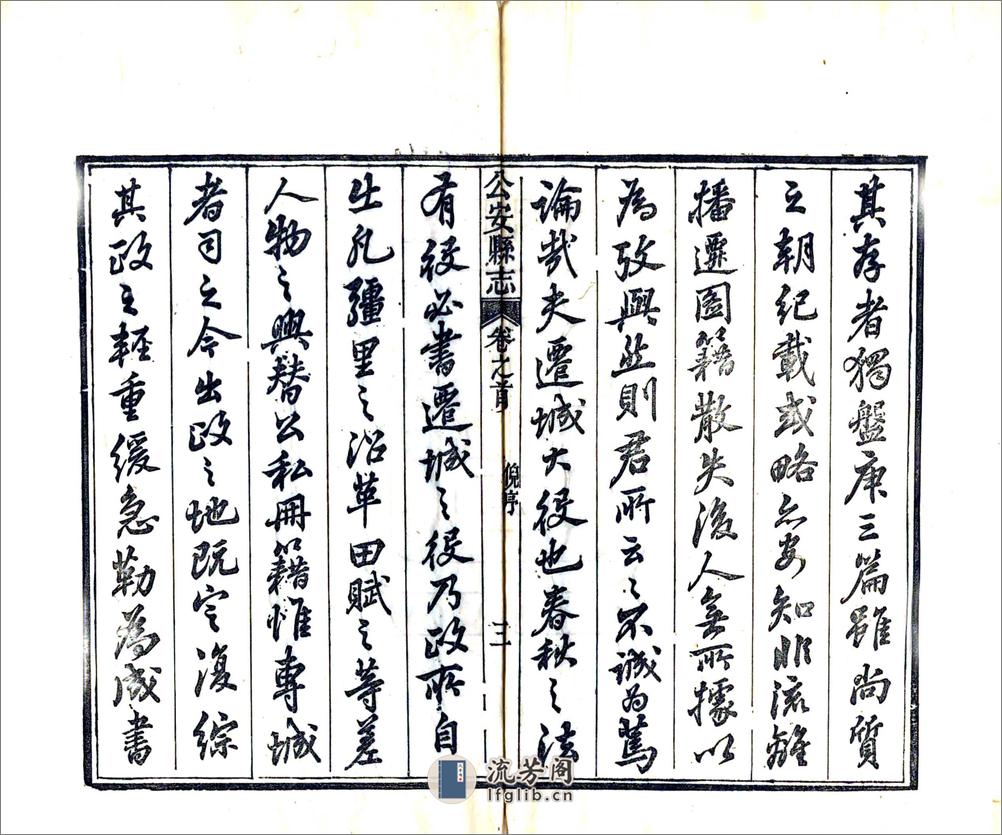 其存者獨盤庚三篇雖尚質
之朝紀載或略亦安知非流離
播遷圖籍散失後人無所據以
為攷與然則君所云云不誠為篤
論哉夫遷城大役也春秋之法
公安縣志
卷之首
倪序
三
有役必書遷城之役乃政所自
出凡疆里之沿革田賦之等差
人物之興替公私冊籍惟專城
者司之今出政之地既定復綜
其政之輕重緩急勒為成書
流芳阁
lfglib.cn